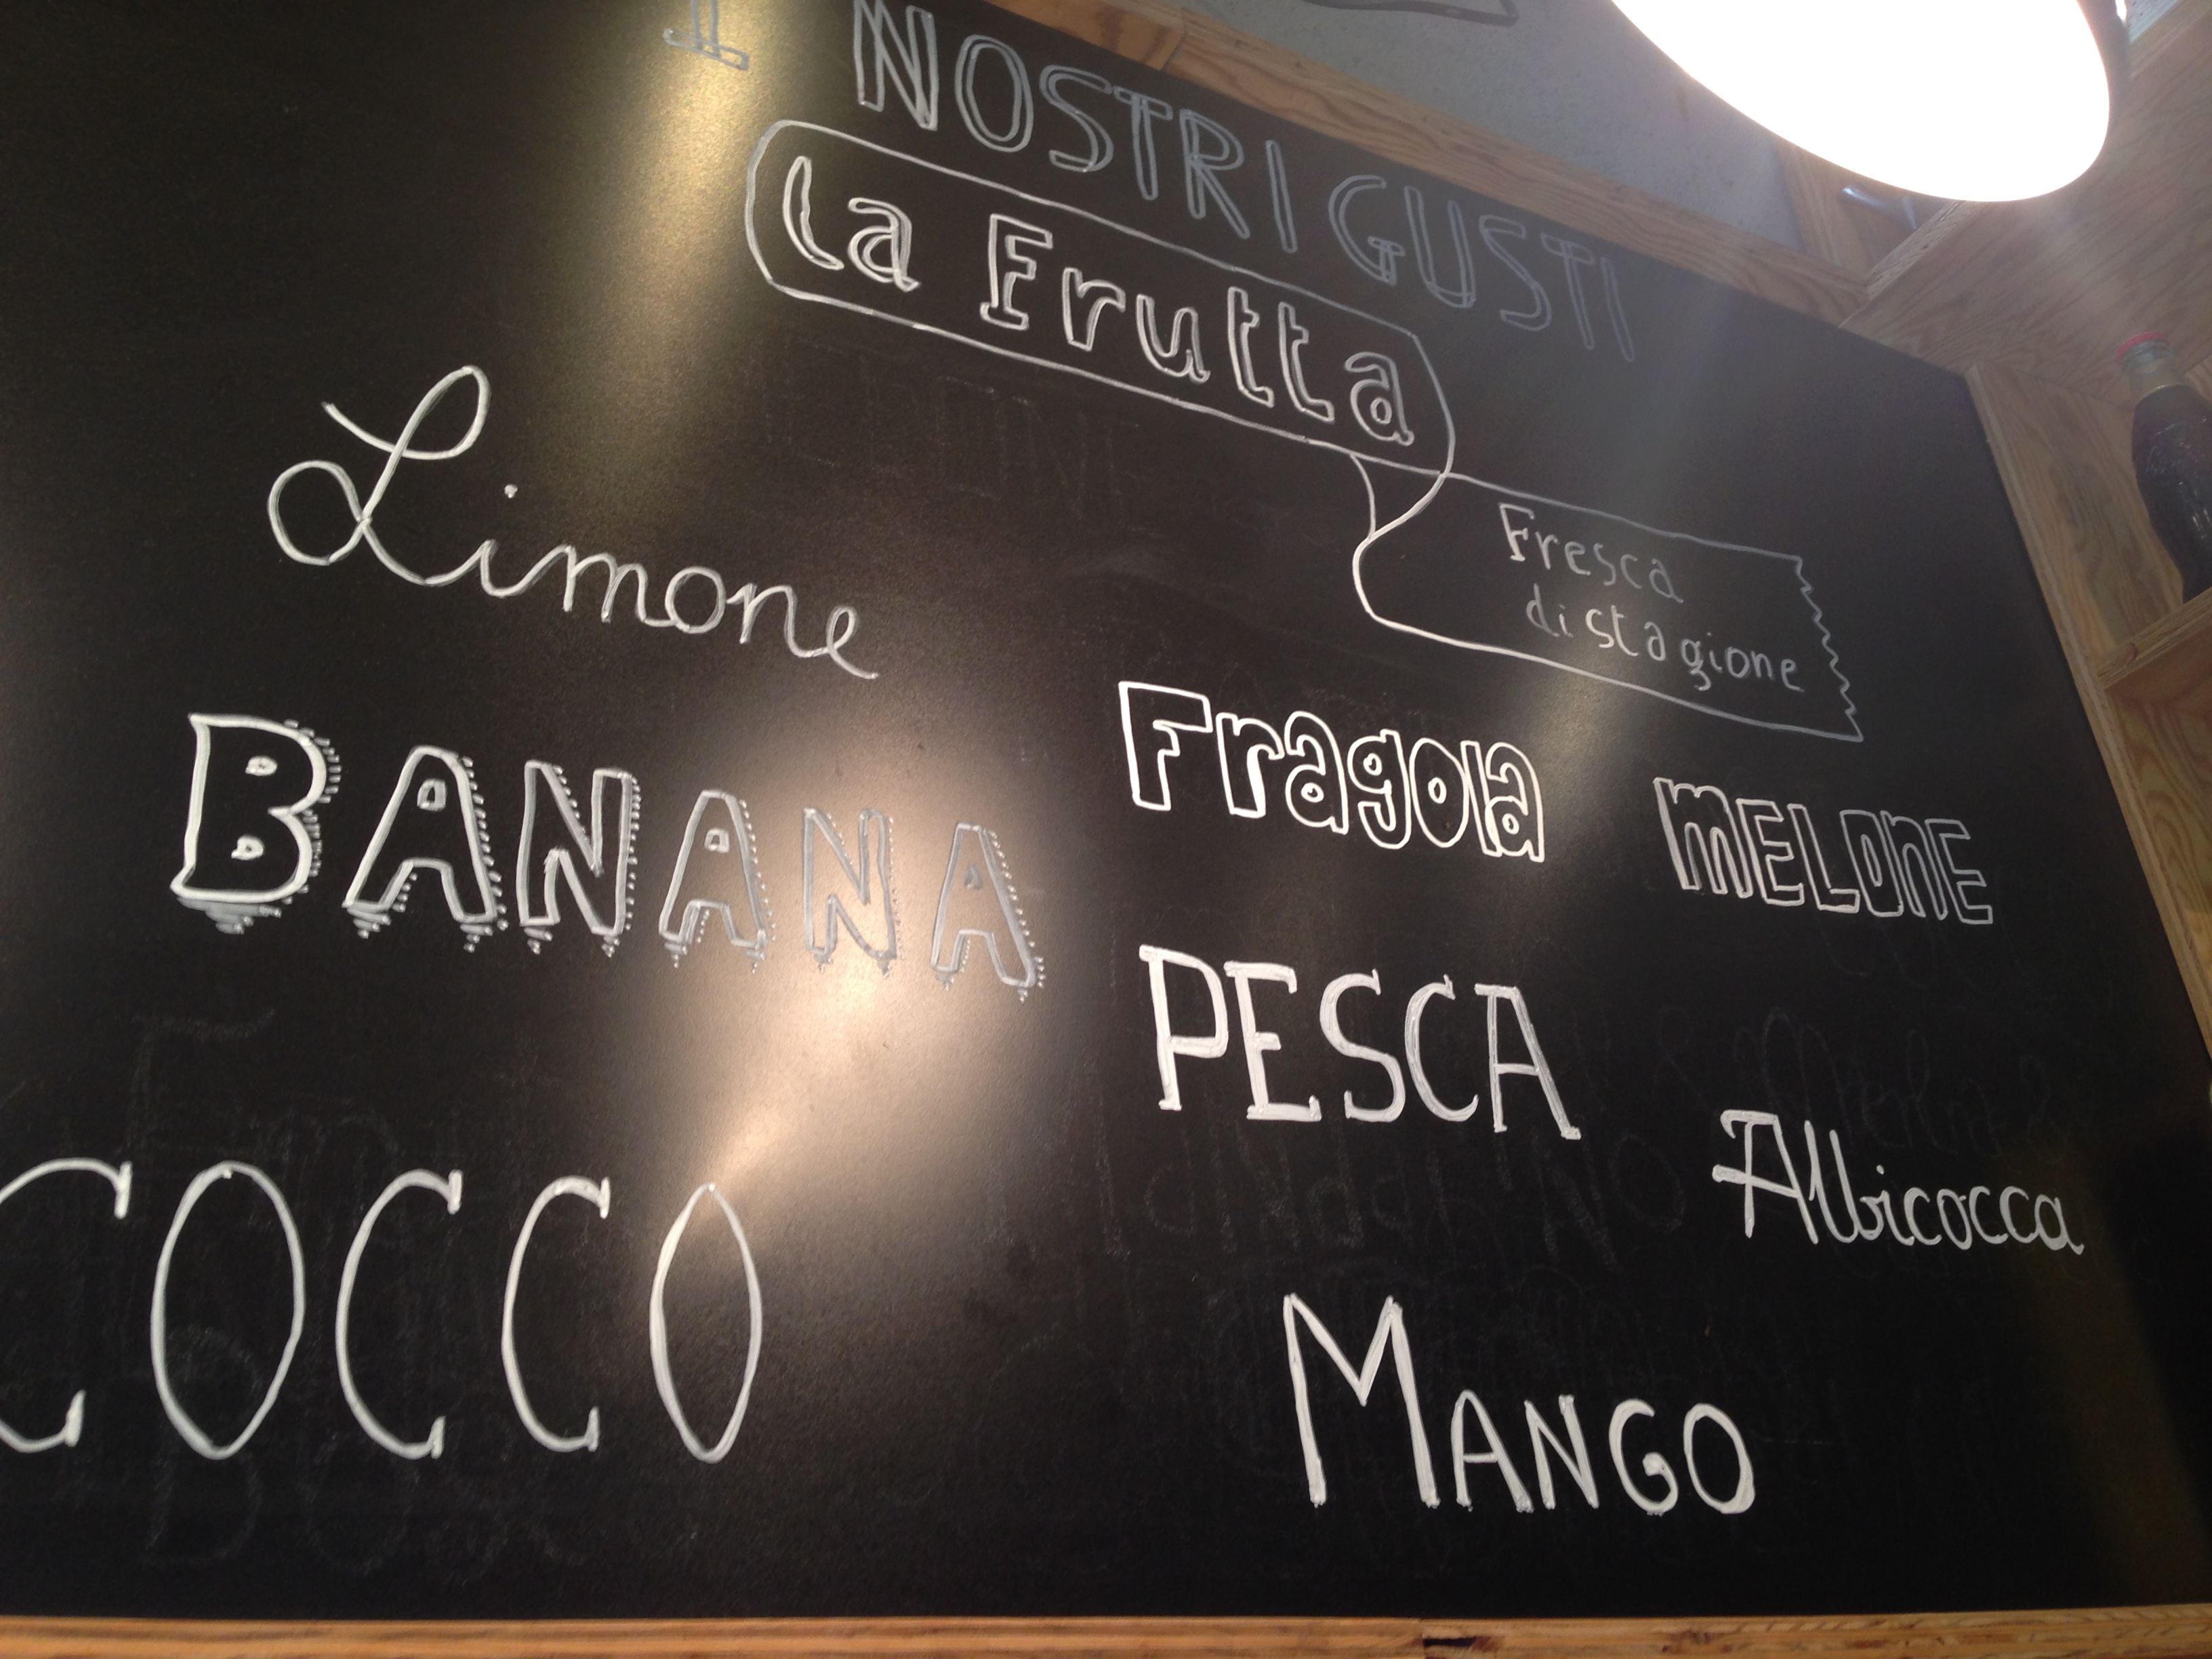 I NOSTRI GUSTI
la Frutta
Fresca
di stagione
Limone
BANANA
COCCO
Fragola
MELONE
PESCA
Albicocca
MANGO